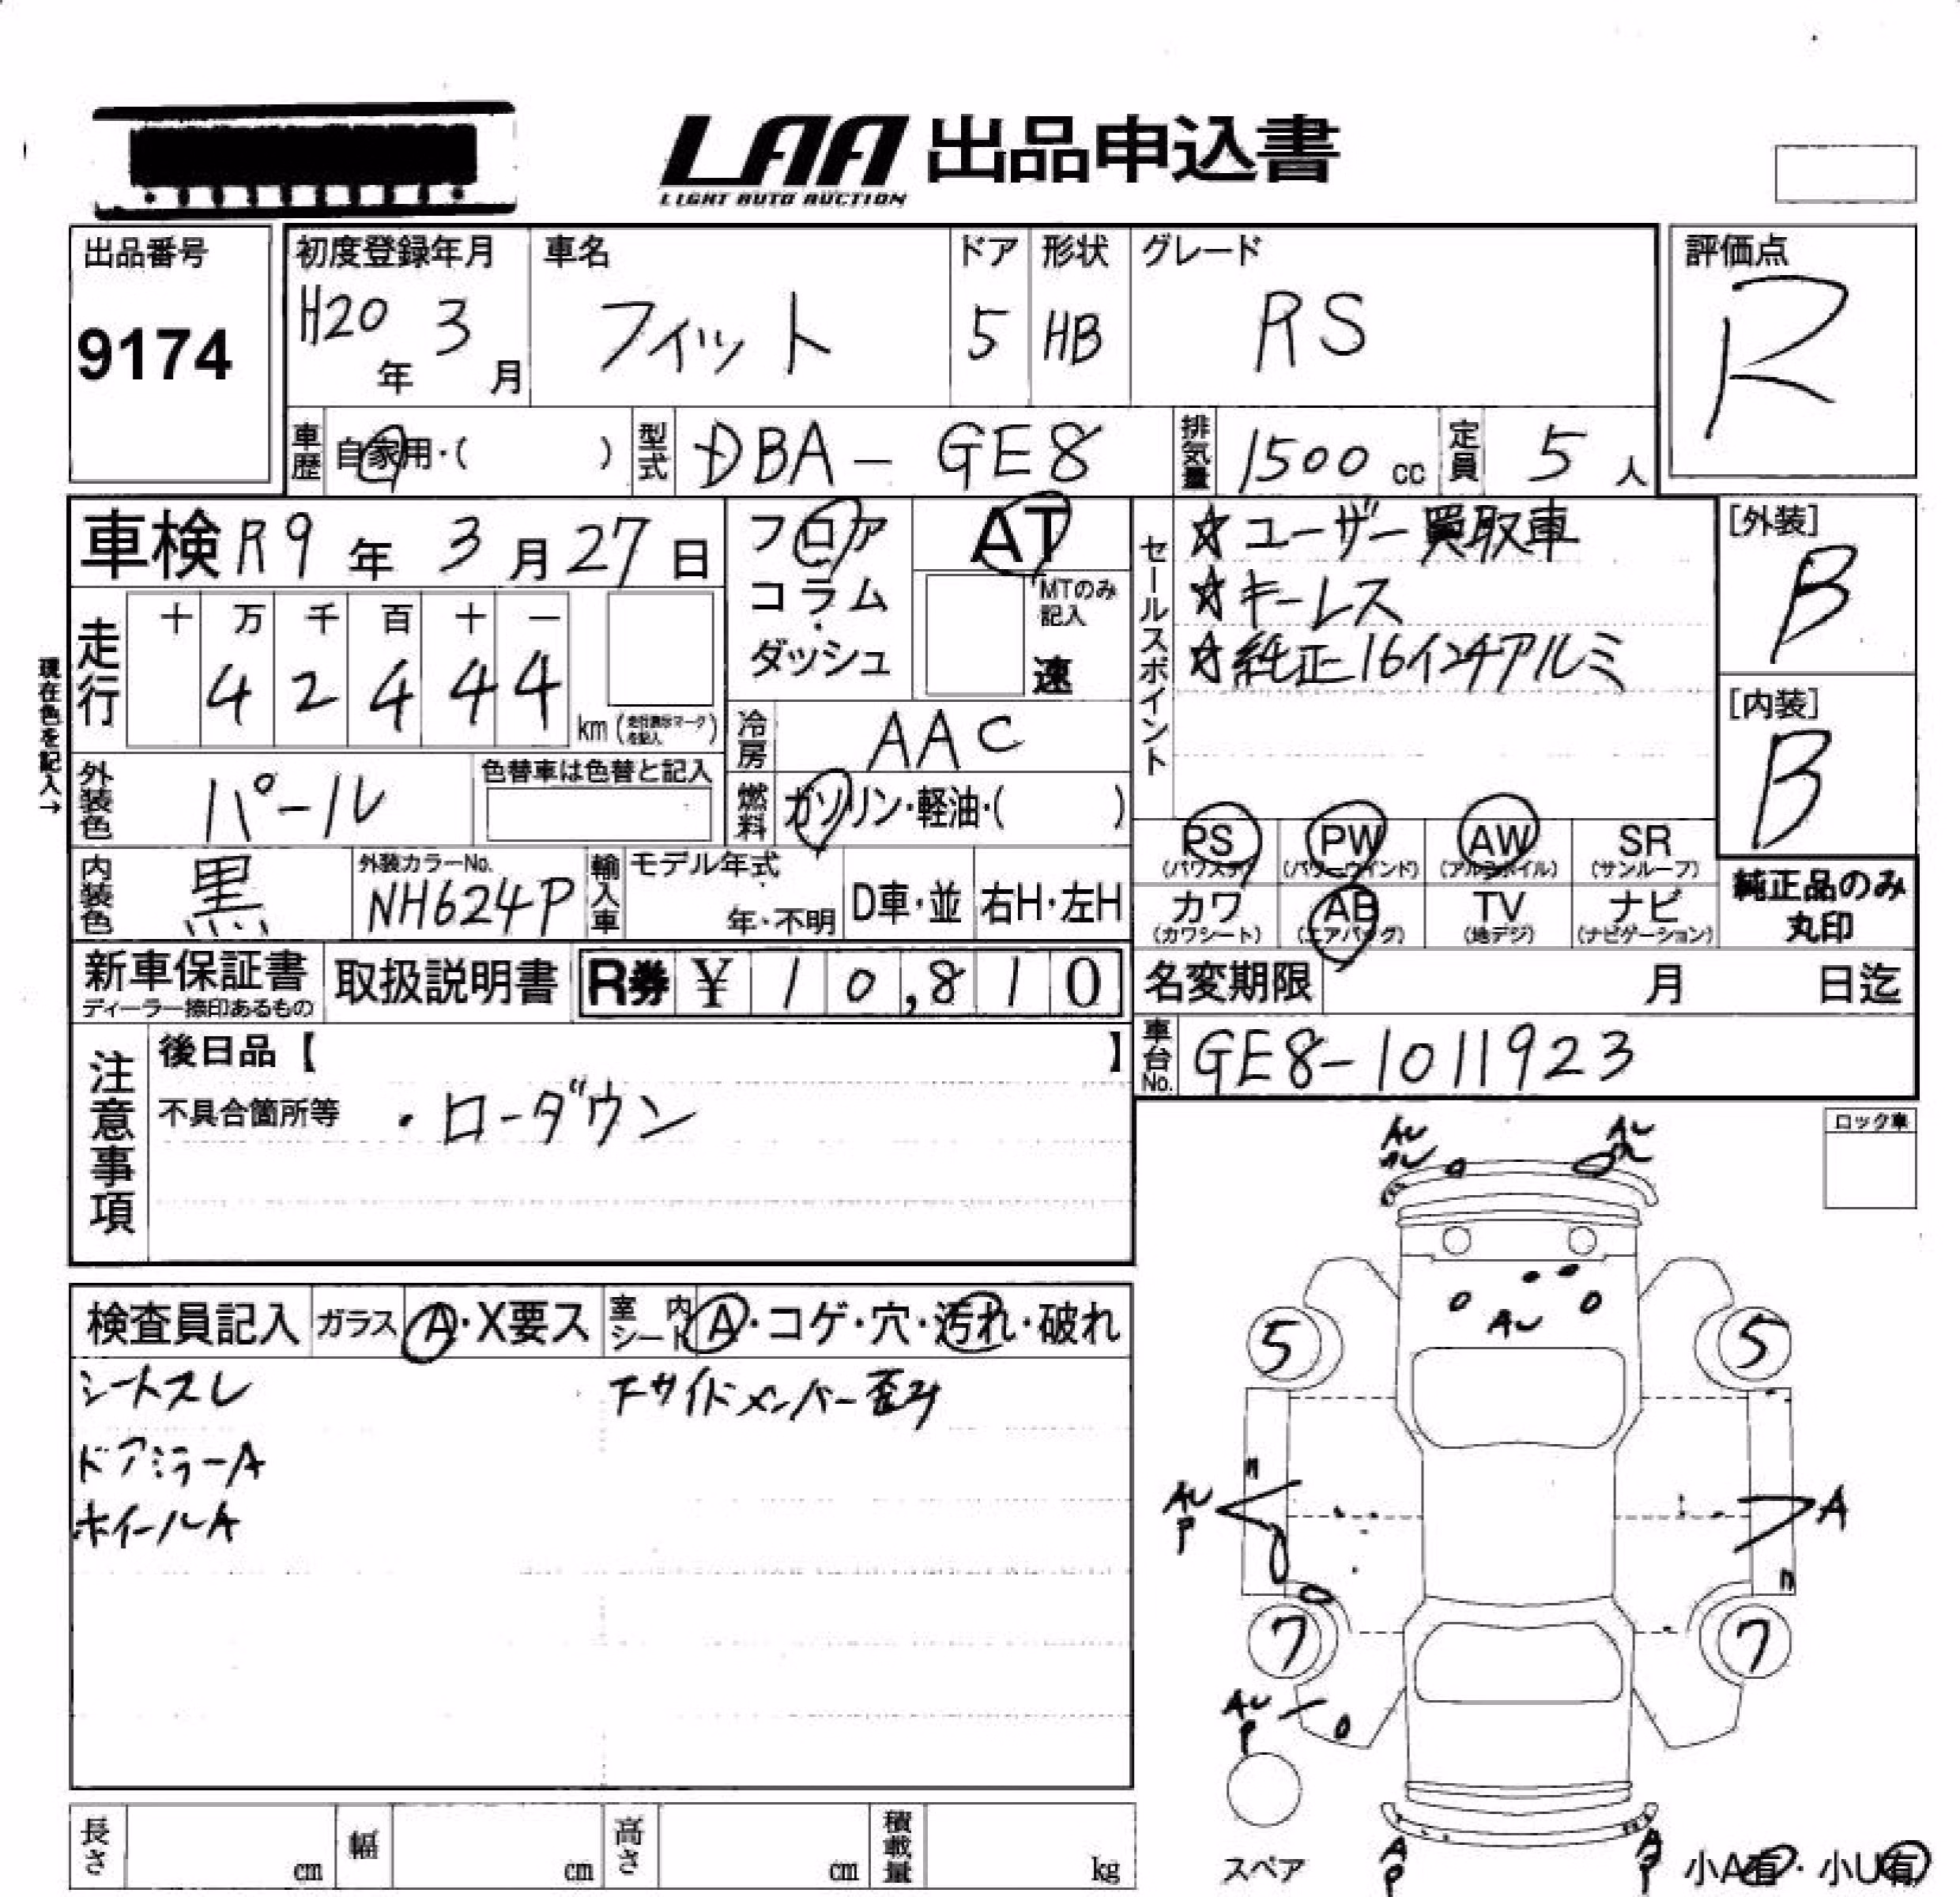 LAA 出品申込書
LIGHT AUTO AUCTION
出品番号
9174
初度登録年月
H20年 3月
車名
フィット
ドア
5
形状
HB
グレード
RS
評価点
R
車歴 自家用・( )
型式 DBA-GE8
排気量 1500 cc
定員 5人
車検 R9年 3月 27日
フロア
コラム
・
ダッシュ
AT
MTのみ
記入
速
セールスポイント
☆ユーザー買取車
☆キーレス
☆純正16インチアルミ
[外装]
B
[内装]
B
現在色を記入→
走行
十 万 千 百 十 一
4 2 4 4 4
km (走行表示マークを記入)
冷房 AAC
外装色 パール
色替車は色替と記入
燃料 ガソリン・軽油・( )
PS
(パワステ)
PW
(パワーウインド)
AW
(アルミホイル)
SR
(サンルーフ)
カワ
(カワシート)
AB
(エアバッグ)
TV
(地デジ)
ナビ
(ナビゲーション)
純正品のみ
丸印
内装色 黒
外装カラーNo.
NH624P
輸入車
モデル年式
年・不明
D車・並
右H・左H
新車保証書
ディーラー捺印あるもの
取扱説明書
R券 ¥10,810
名変期限 月 日迄
車台No. GE8-1011923
注意事項
後日品【 】
不具合箇所等 ・ローダウン
ロック車
検査員記入
ガラス A・X要ス
室内シート A・コゲ・穴・汚れ・破れ
シートスレ
下サイドメンバー歪み
ドアミラーA
ホイールA
AU
AU
AU
AU
5
5
AU
P
A
7
7
AU
P
A
P
A
P
スペア
小A有・小U有
長さ cm
幅 cm
高さ cm
積載量 kg